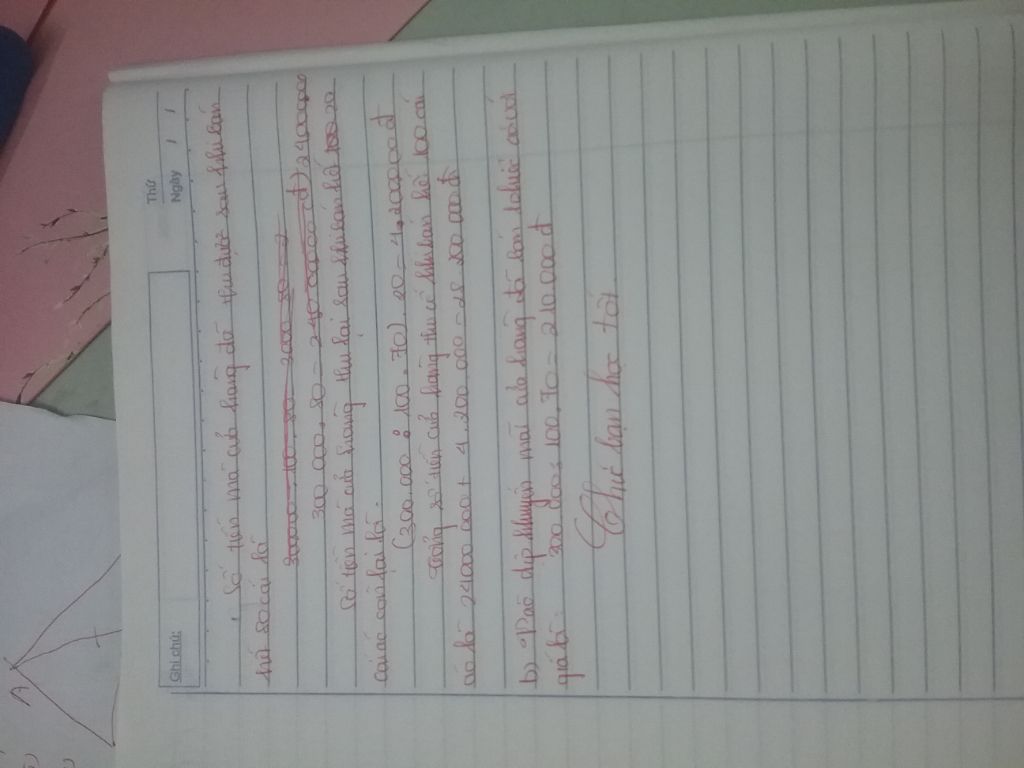 Ghi chú:
Thứ
Ngày / /
Số tiền mà cửa hàng đó thu được sau khi bán
hết 80 cái là
300 000 . 80 = 24 000 000
Số tiền mà cửa hàng thu lại sau khi bán hết 20
cái còn lại là:
(300.000 : 100 . 70) . 20 = 4.200 000 đ
Tổng số tiền cửa hàng thu về khi bán hết 100 cái
áo là 24000 000 + 4.200 000 = 28.200 000 đ
b) Trong dịp khuyến mãi cửa hàng đã bán 1 chiếc áo với
giá là:
300 000 : 100 . 70 = 210 000 đ
Chúc bạn học tốt
A